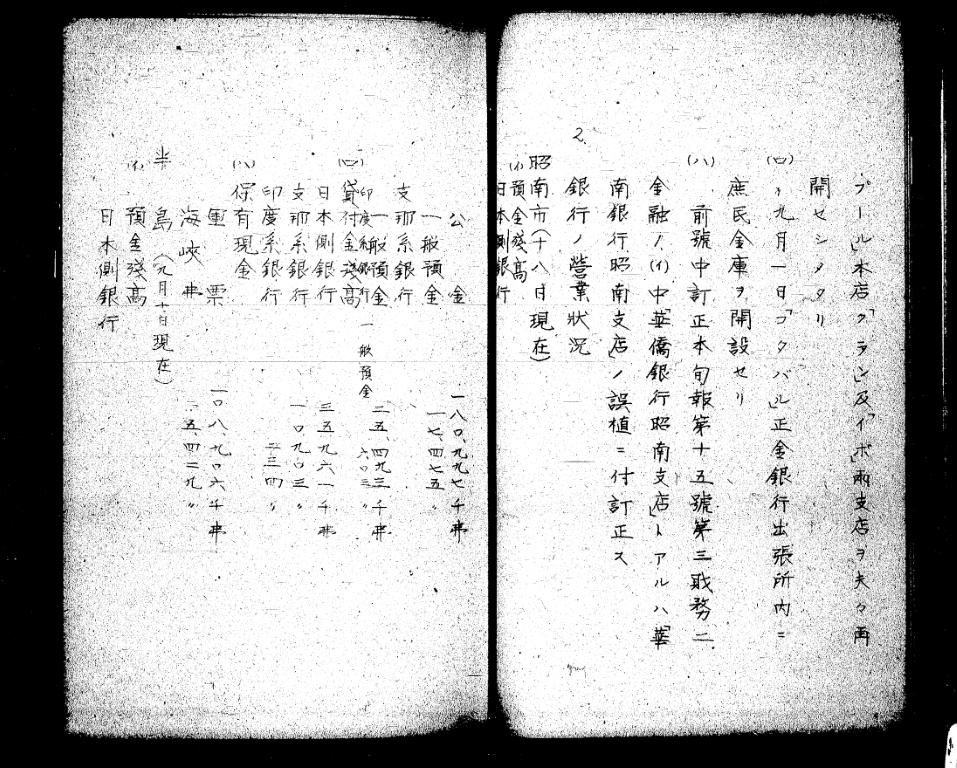 プール」本店「クラン」及「イポ」両支店ヲ夫々再
開セシメタリ
(ロ) 九月一日「コタバル」正金銀行出張所内ニ
庶民金庫ヲ開設セリ
(ハ) 前號中訂正本旬報第十五號第三戝務ニ
金融ノ(イ)中「華僑銀行昭南支店」トアルハ「華
南銀行昭南支店」ノ誤植ニ付訂正ス
2.
銀行ノ營業狀況
昭南市(十八日現在)
(イ) 預金殘高
日本側銀行
公金 一八〇、九九七千弗
一般預金 一七、四七五〃
支那系銀行
一般預金 二五、四九三千弗
印度系銀行 一般預金 六〇三〃
(ロ) 貸付金殘高
日本側銀行 三五九六一千弗
支那系銀行 一〇九〇三〃
印度系銀行 二三四〃
(ハ) 保有現金
軍票 一〇八、九〇六千弗
海峽弗 五四二九〃
半島(九月十日現在)
(イ) 預金殘高
日本側銀行